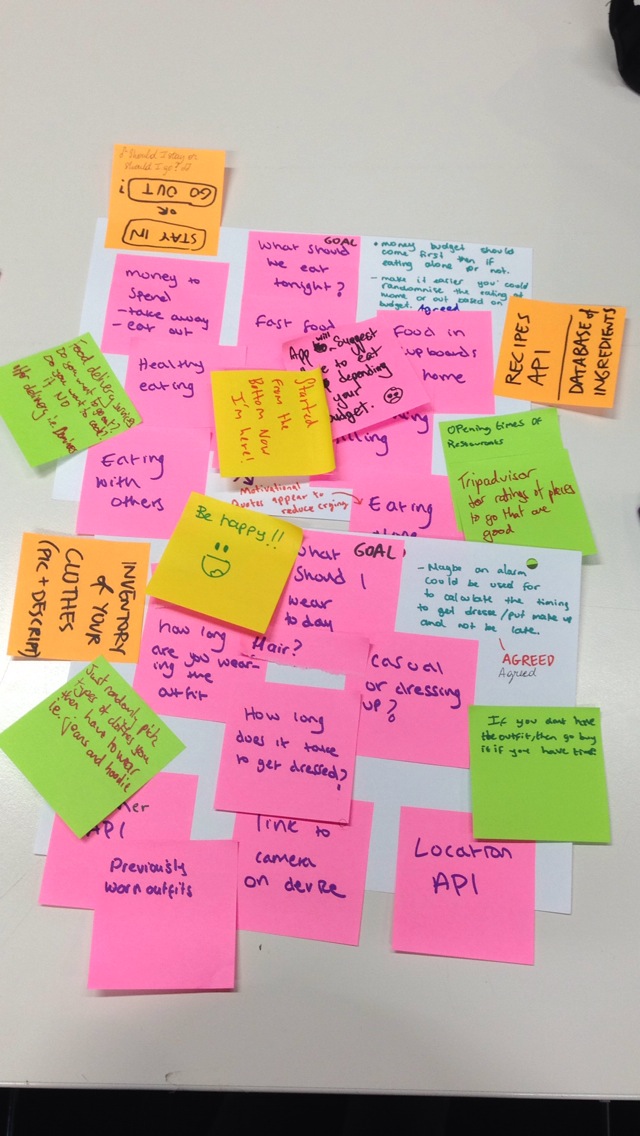 Should I stay or
should I go?
GO OUT ?
OR
STAY IN
GOAL
What should
we eat
tonight?
• money budget should
come first then if
eating alone or not.
- make it easier you could
randomnise the eating at
home or out based on
budget.
Agreed
money to
spend
- take away
- eat out
Fast food
App will suggest
to eat
depending
your
budget.
Food in
upboards
home
RECIPES
API
DATABASE of
INGREDIENTS
Healthy
eating
Food delivery service
Do you want to go out?
Do you want to cook?
if NO
Started
From the
Bottom Now
I'm here!
lling
Opening times of
Restaurants
Tripadvisor
for ratings of places
to go that are
good
Eating
with
others
Motivational
Quotes appear to
reduce crying
Eating
Be happy!!
what GOAL
should I
wear
today
- Maybe an alarm
could be used for
to calculate the timing
to get dresse/put make up
and not be late.
AGREED
Agreed
INVENTORY
of YOUR
CLOTHES
(PIC + DESCRIPT)
how long
are you wear-
ing the
outfit
Hair?
casual
or dressing
up?
Just randomly pick
types of clothes you
then have to wear
i.e. jeans and hoodie
How long
does it take
to get dressed?
If you dont have
the outfit, then go buy
it if you have time!
her
API
link to
camera
on device
Location
API
Previously
worn outfits